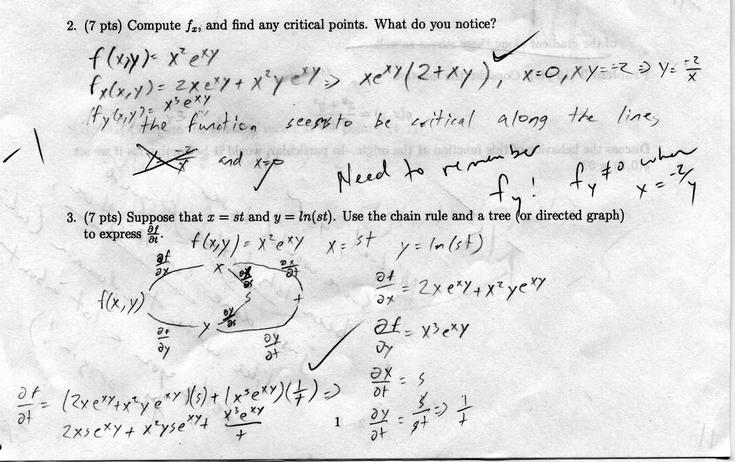 2. (7 pts) Compute fₓ, and find any critical points. What do you notice?
f(x,y) = x²eˣʸ
fₓ(x,y) = 2xeˣʸ + x²yeˣʸ ⇒ xeˣʸ(2+xy), x=0, xy=-2 ⇒ y= -2/x
f_y(x,y) = x³eˣʸ
the function seems to be critical along the lines
-1
and x=0
Need to remember f_y! f_y ≠ 0 when x = -2/y
3. (7 pts) Suppose that x = st and y = ln(st). Use the chain rule and a tree (or directed graph)
to express ∂f/∂t.
f(x,y) = x²eˣʸ x = st y = ln(st)
∂f/∂x x ∂x/∂s ∂x/∂t
f(x,y) s t
∂f/∂y y ∂y/∂s ∂y/∂t
∂f/∂x = 2xeˣʸ + x²yeˣʸ
∂f/∂y = x³eˣʸ
∂x/∂t = s
∂y/∂t = s/st ⇒ 1/t
∂f/∂t = (2xeˣʸ + x²yeˣʸ)(s) + (x³eˣʸ)(1/t) ⇒
2xseˣʸ + x²yseˣʸ + x³eˣʸ/t
1